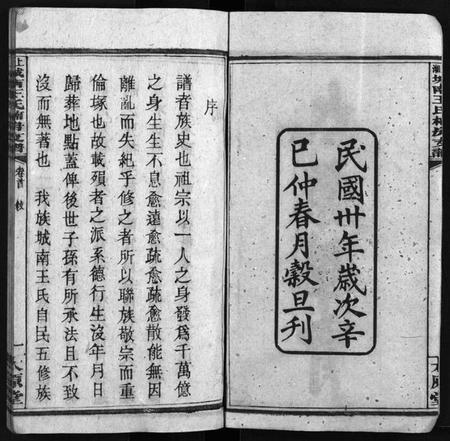 民國卅年歲次辛
巳仲春月穀旦刊
太原堂
序
譜者族史也祖宗以一人之身發爲千萬億
之身生生不息愈遠愈疏愈疏愈散能無因
離亂而失紀乎修之者所以聯族敬宗而重
倫塚也故載殞者之派系德行生沒年月日
歸葬地點蓋俾後世子孫有所承法且不致
沒而無著也　我族城南王氏自民五修族
卷首
一
太原堂